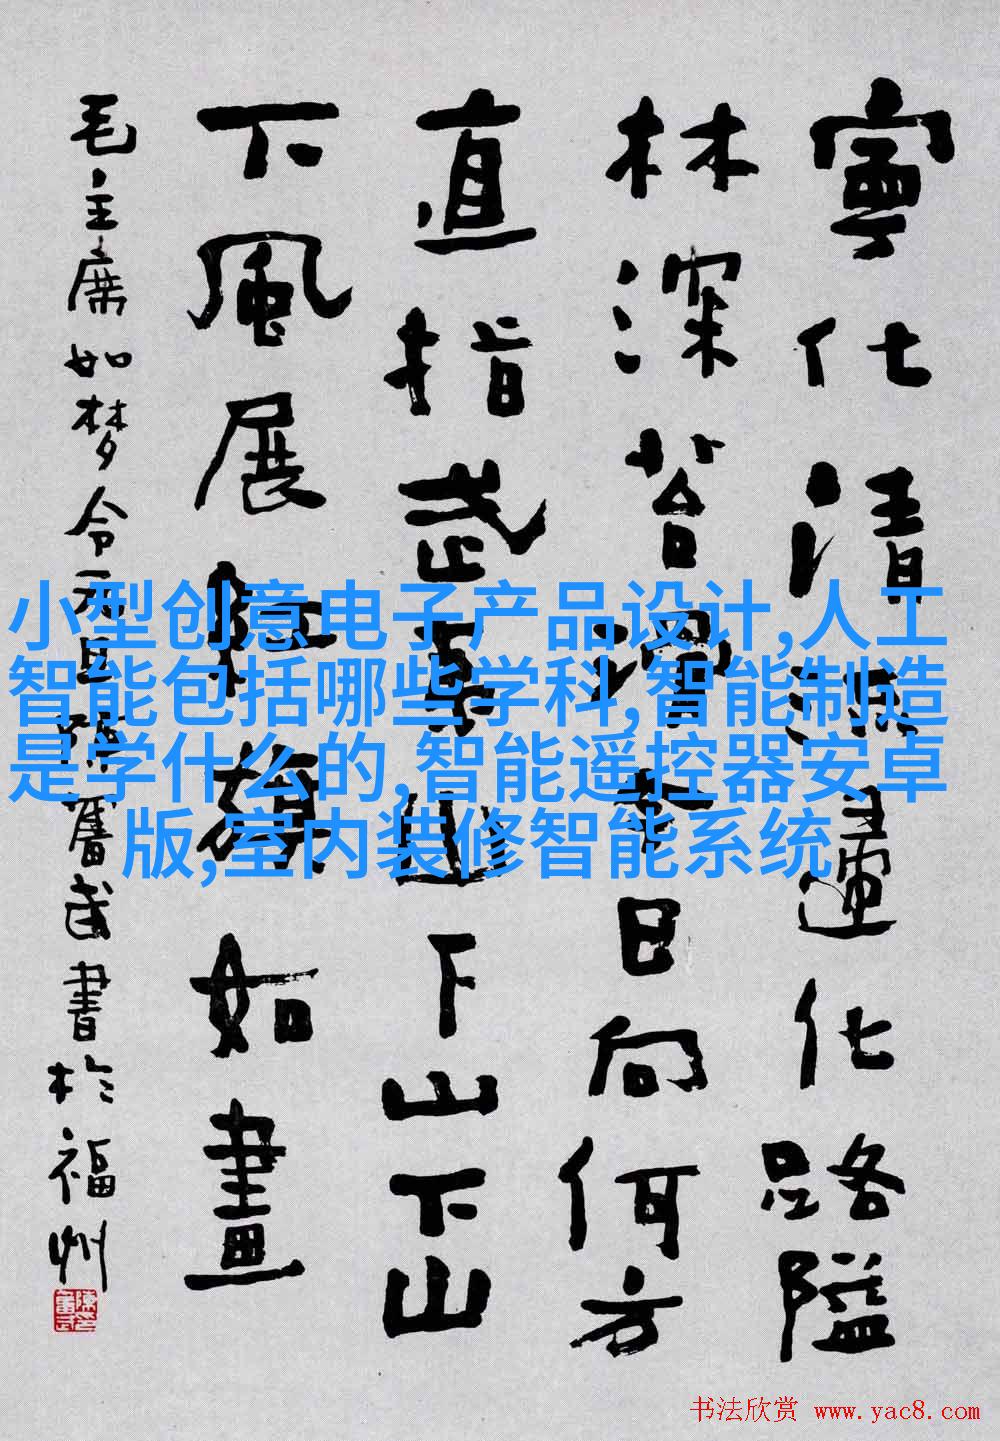 寧化清流歸化路隘
林深苔滑今日向何方
直指武夷山下山下山
下風展紅旗如畫
毛主席如梦令元旦陳奮武書於福州
小型创意电子产品设计,人工
智能包括哪些学科,智能制造
是学什么的,智能遥控器安卓
版,室内装修智能系统
书法欣赏 www.yac8.com